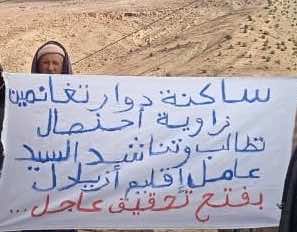 ساكنة دوار تغانمين
زاوية احنصال
تطالب وتناشد السيد
عامل إقليم أزيلال
بفتح تحقيق عاجل...